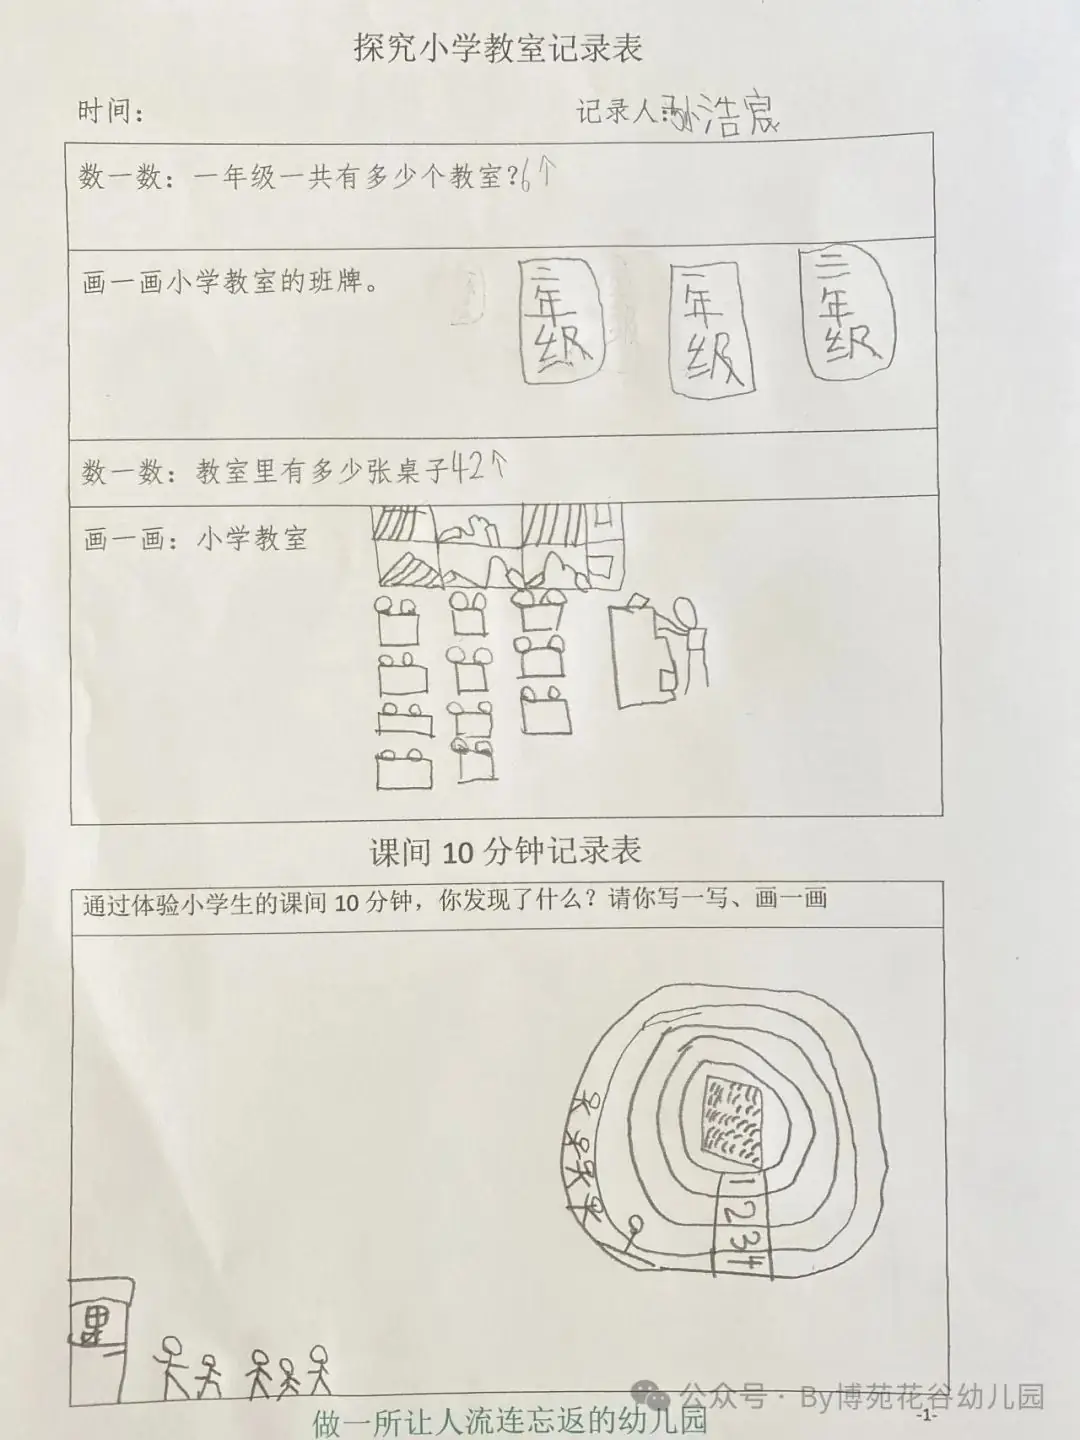 探究小学教室记录表
时间：
记录人：孙浩宸
数一数：一年级一共有多少个教室？6个
画一画小学教室的班牌。
二年级
一年级
三年级
数一数：教室里有多少张桌子42个
画一画：小学教室
课间10分钟记录表
通过体验小学生的课间10分钟，你发现了什么？请你写一写、画一画
1
2
3
4
公众号 · By博苑花谷幼儿园
做一所让人流连忘返的幼儿园
-1-